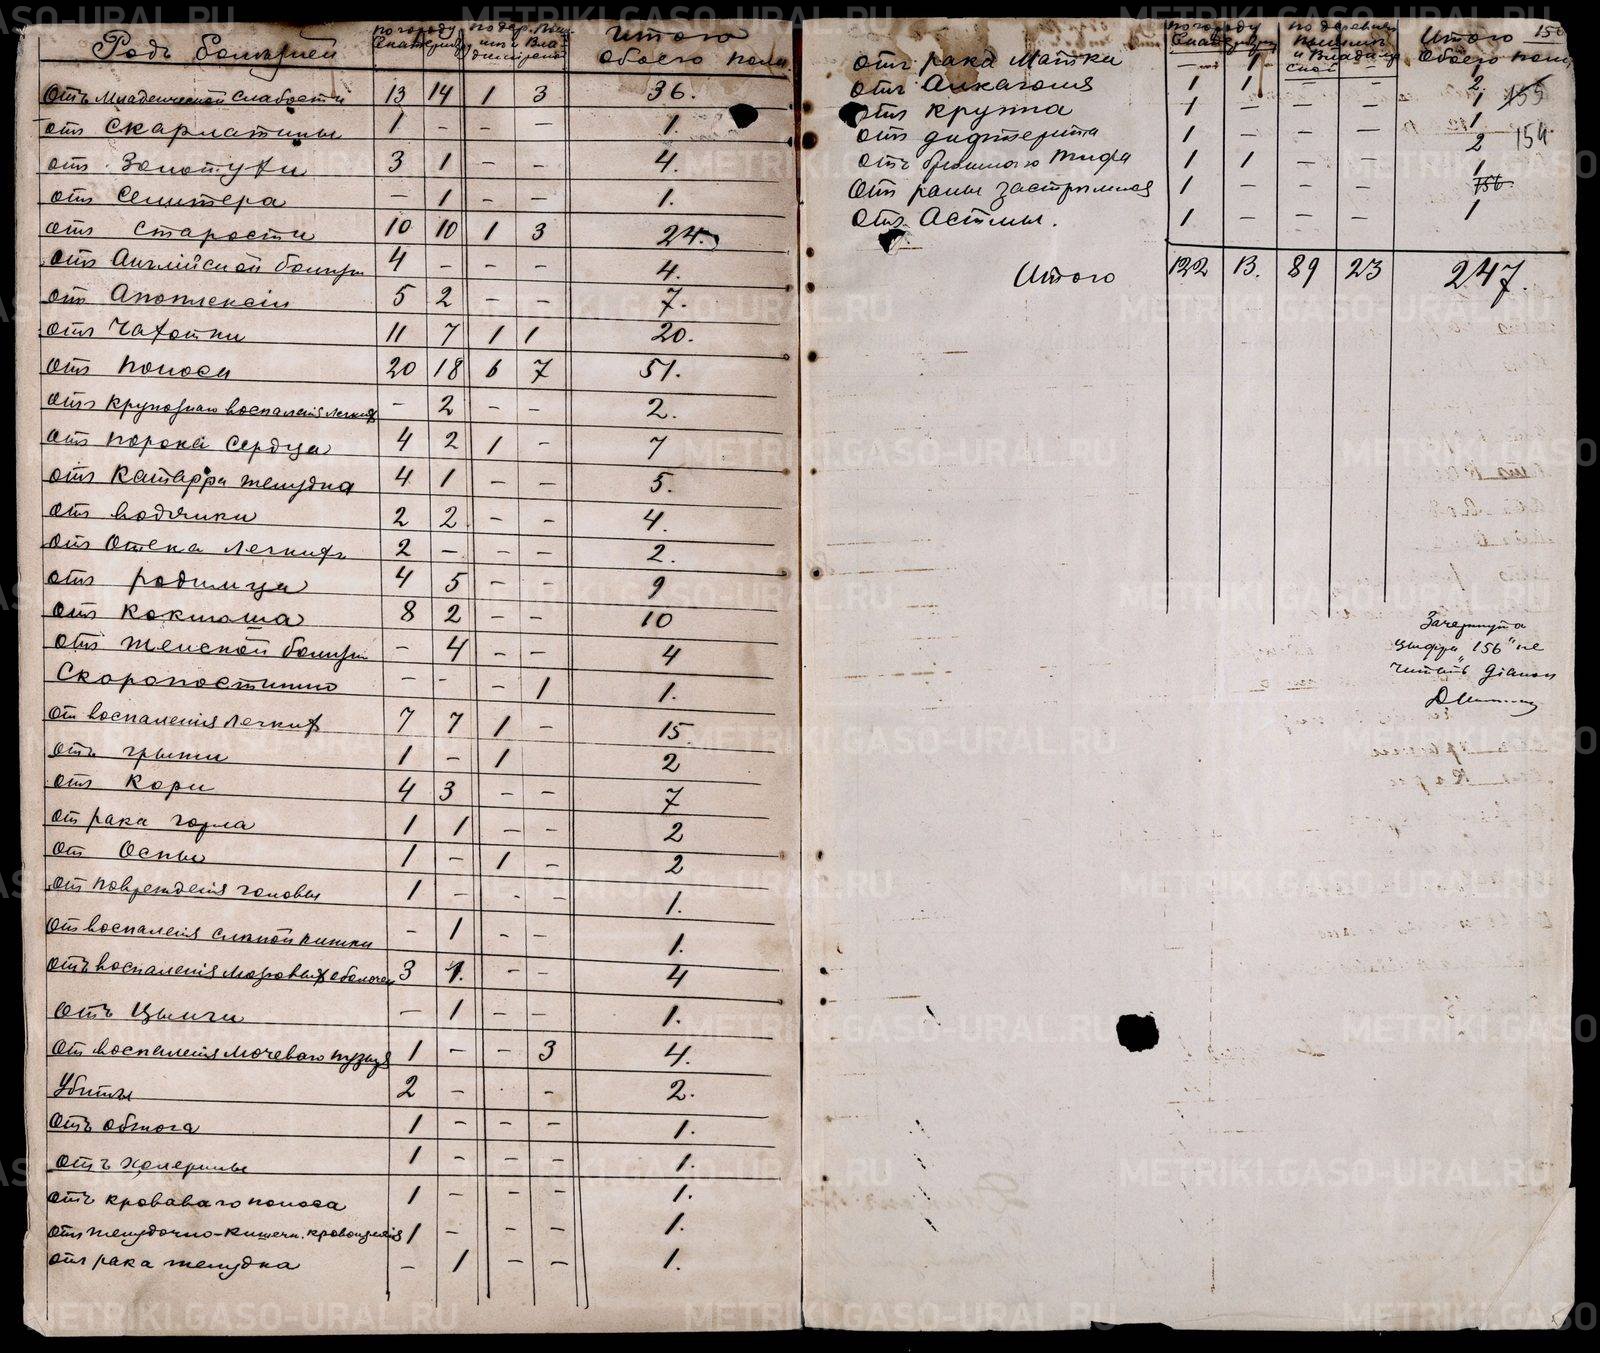 Родъ болѣзней по городу Екатеринб по дер. Пыш- мѣ и Вла- димірской Итого обоего пола
отъ младенческой слабости 13 14 1 3 36.
отъ скарлатины 1 - - - 1.
отъ золотухи 3 1 - - 4.
отъ - 1 - - 1.
отъ старости 10 10 1 3 24.
отъ Англійской болѣзни 4 - - - 4.
отъ Апоплексіи 5 2 - - 7.
отъ чахотки 11 7 1 1 20.
отъ поноса 20 18 6 7 51.
отъ крупознаго воспаленія легкихъ - 2 - - 2.
отъ порока сердца 4 2 1 - 7
отъ Катарра желудка 4 1 - - 5.
отъ водянки 2 2 - - 4.
отъ отека легкихъ 2 - - - 2.
отъ родимца 4 5 - - 9
отъ коклюша 8 2 - - 10
отъ женской болѣзни - 4 - - 4
Скоропостижно - - - 1 1.
от воспаленія легкихъ 7 7 1 - 15
отъ грыжи 1 - 1 2
отъ Кори 4 3 - - 7
от рака горла 1 1 - - 2
от Оспы 1 - 1 - 2
от поврежденія головы 1 - - - 1.
от воспаленія слѣпой кишки - 1 - - 1.
отъ воспаленія мозговыхъ оболочек 3 1. - - 4
отъ Цынги - 1 - - 1.
от воспаленія мочеваго пузыря 1 - - 3 4.
Убиты 2 - - - 2.
отъ обжога 1 - - - 1.
отъ холерины 1 - - - 1.
отъ кроваваго поноса 1 - - - 1.
отъ желудочно-кишечн. кровоизлія 1 - - - 1.
отъ рака желудка - 1 - - 1.
по городу Екатеринб по деревнѣ Пышмѣ и Владимір ской Итого обоего пола 156
отъ рака Матки - 1 - - 1
отъ Алкаголя 1 1 - - 2. 155
отъ крупа 1 - - - 1
отъ дифтерита 1 - - - 1 154
отъ брюшного тифа 1 1 - - 2
отъ раны застрѣлился 1 - - - 1 156
отъ Астмы. 1 - - - 1
Итого 122 13. 89 23 247.
Зачеркнута
цыфра „156" не
читать Діакон
METRIKI.GASO-URAL.RU